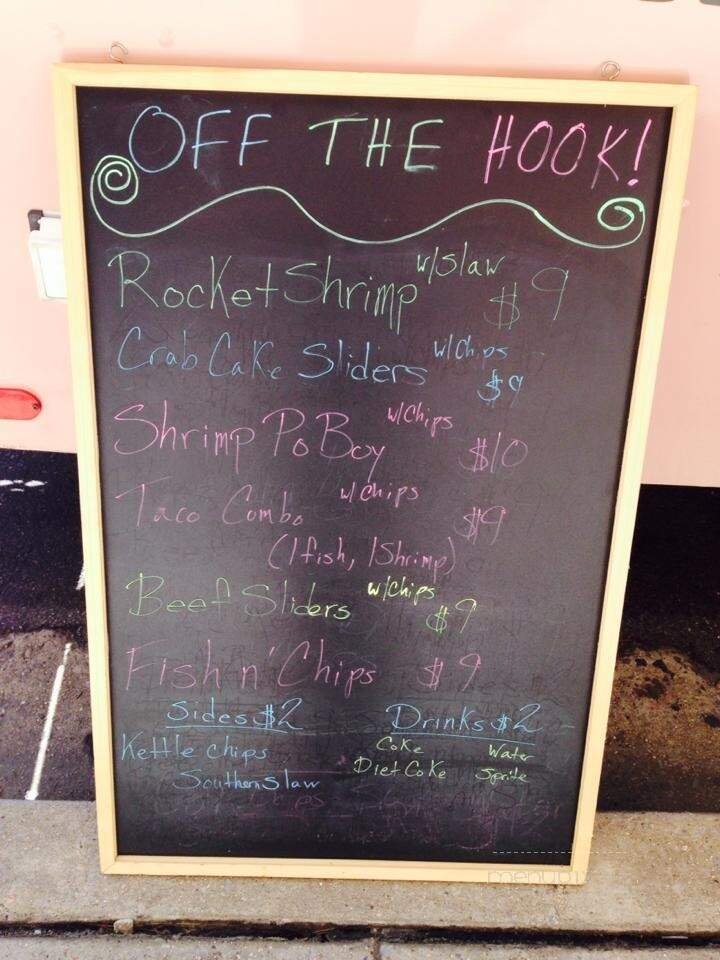 OFF THE HOOK!
Rocket Shrimp w/slaw $9
Crab Cake Sliders w/Chips $9
Shrimp Po Boy w/Chips $10
Taco Combo w/chips $9
(1 fish, 1 Shrimp)
Beef Sliders w/chips $9
Fish n' Chips $9
Sides $2 Drinks $2
Kettle chips Coke Water
Southern Slaw Diet Coke Sprite